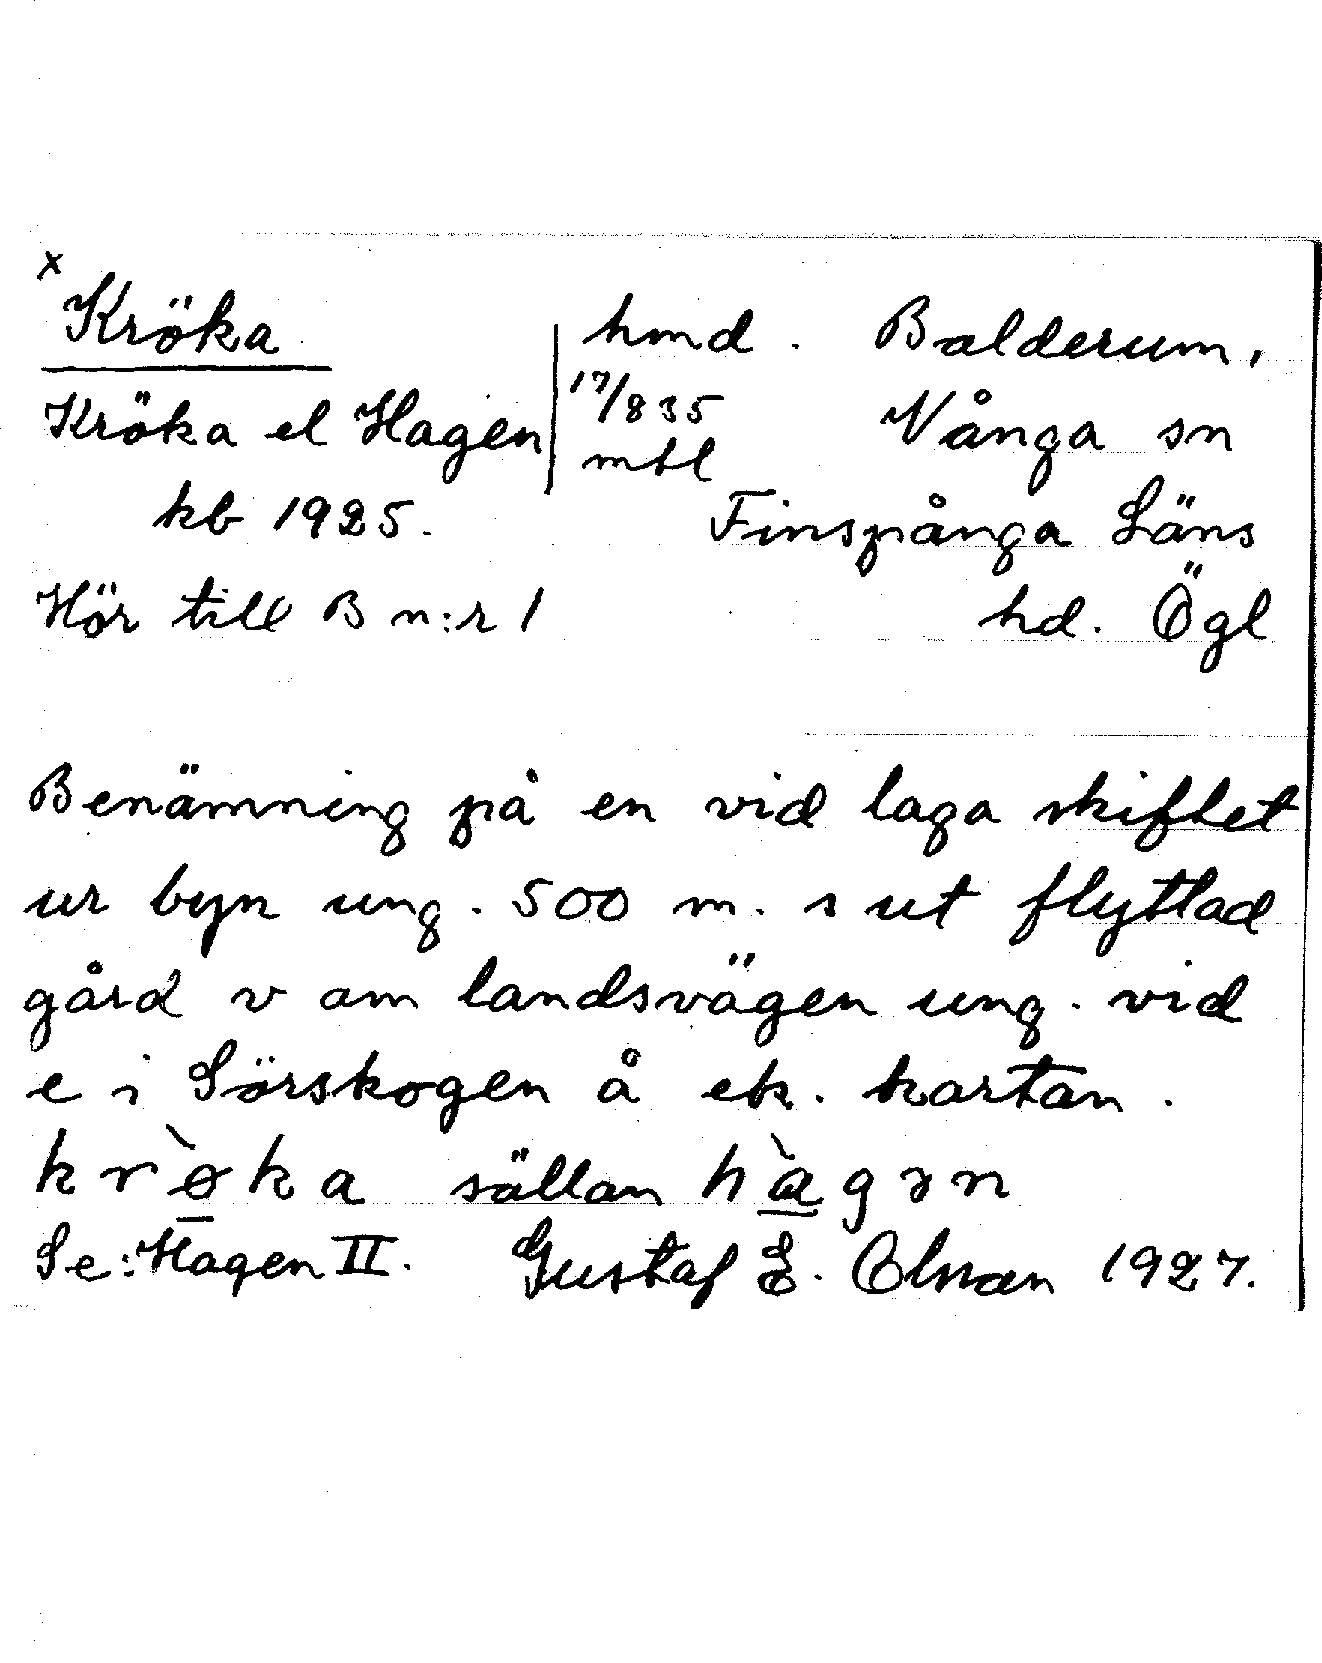 x
Kröka hmd. Balderum,
Kröka el Hagen 17/835 mtl Vånga sn
kb 1925. Finspånga Läns
Hör till B n:r 1 hd. Ögl
Benämning på en vid laga skiftet
ur byn ung. 500 m. s ut flyttad
gård v om landsvägen ung. vid
e i Sörskogen å ek. kartan.
krø̀ka sällan hàgən
Se: Hagen II. Gustaf E. Olsson 1927.